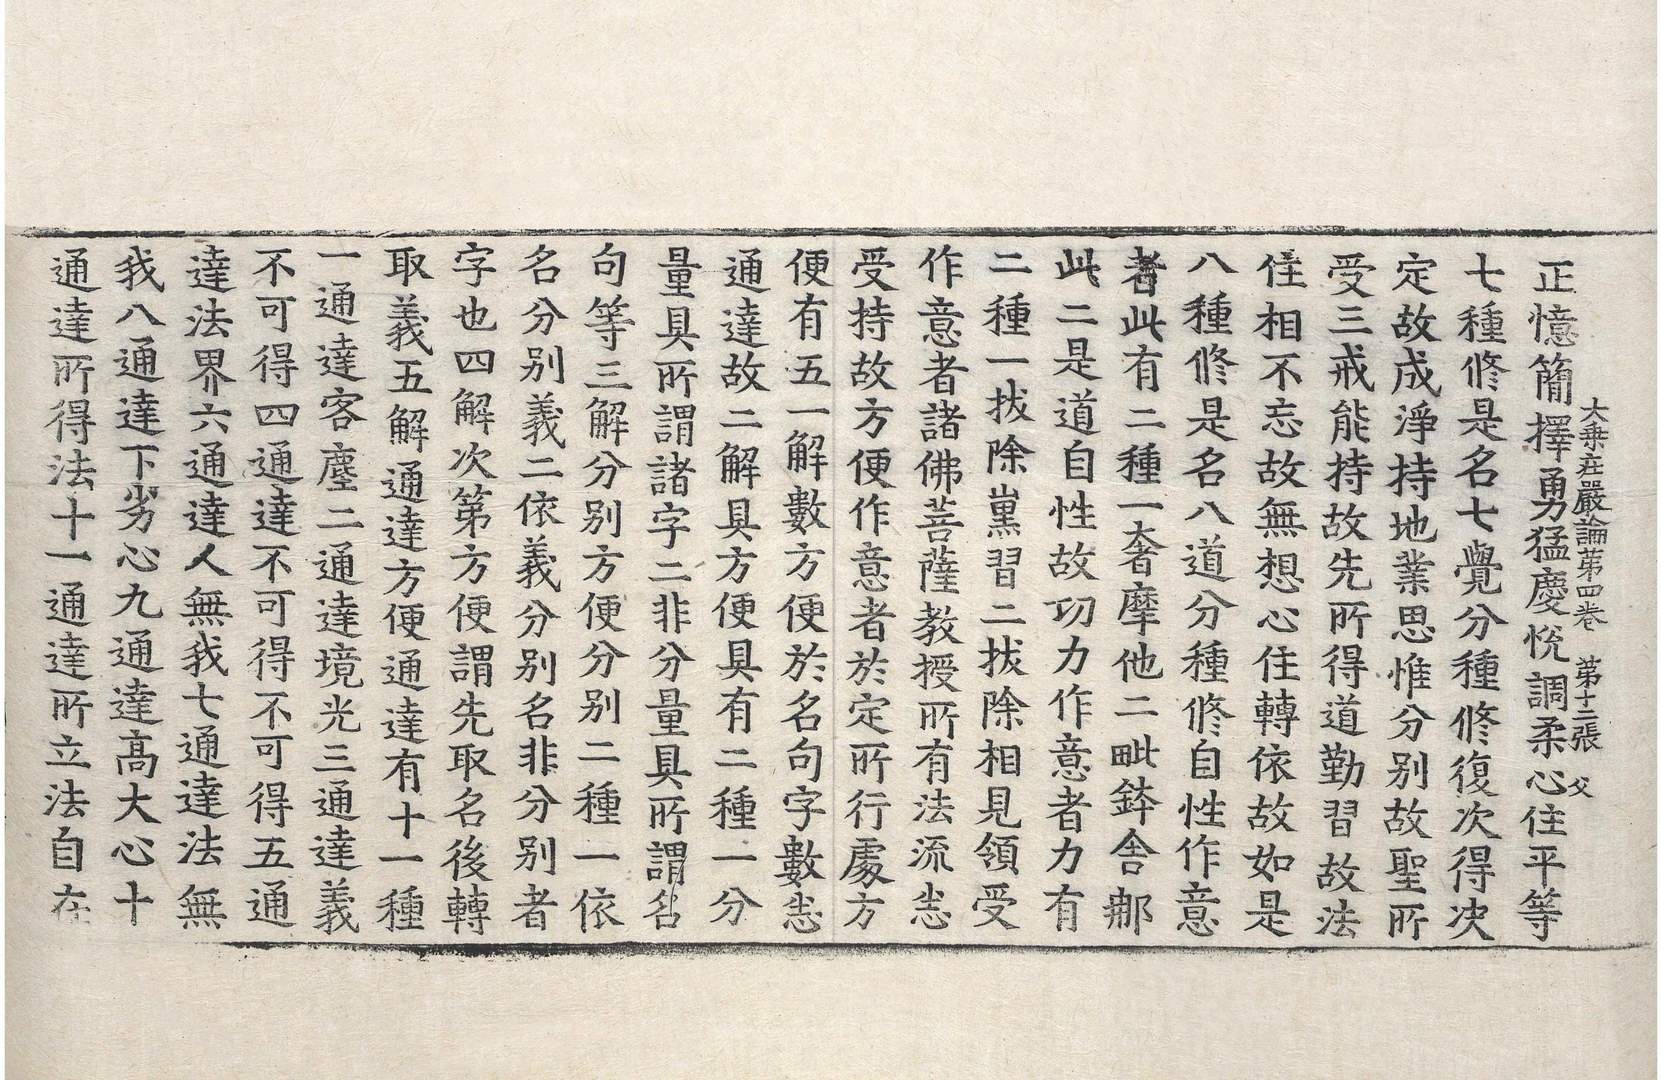 大乗庄嚴論第四卷　第十二張　父
正憶簡擇勇猛慶悅調柔心住平等
七種修是名七覺分種修復次得決
定故成淨持地業思惟分别故聖所
受三戒能持故先所得道勤習故法
住相不忘故無想心住轉依故如是
八種修是名八道分種修自性作意
者此有二種一奢摩他二毗鉢舍那
此二是道自性故功力作意者力有
二種一拔除熏習二拔除相見領受
作意者諸佛菩薩教授所有法流悉
受持故方便作意者於定所行處方
便有五一解數方便於名句字數悉
通達故二解具方便具有二種一分
量具所謂諸字二非分量具所謂名
句等三解分别方便分别二種一依
名分别義二依義分别名非分别者
字也四解次第方便謂先取名後轉
取義五解通達方便通達有十一種
一通達客塵二通達境光三通達義
不可得四通達不可得不可得五通
達法界六通達人無我七通達法無
我八通達下劣心九通達高大心十
通達所得法十一通達所立法自在